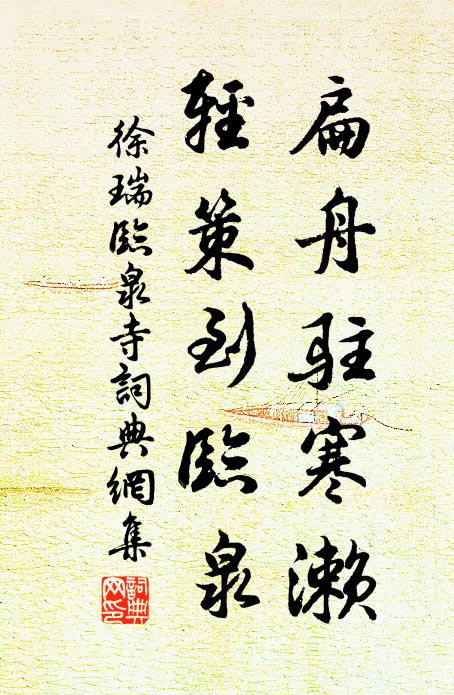 扁舟駐寒瀨
輕策到臨泉
徐瑞臨泉寺詞典網集
詞典網印